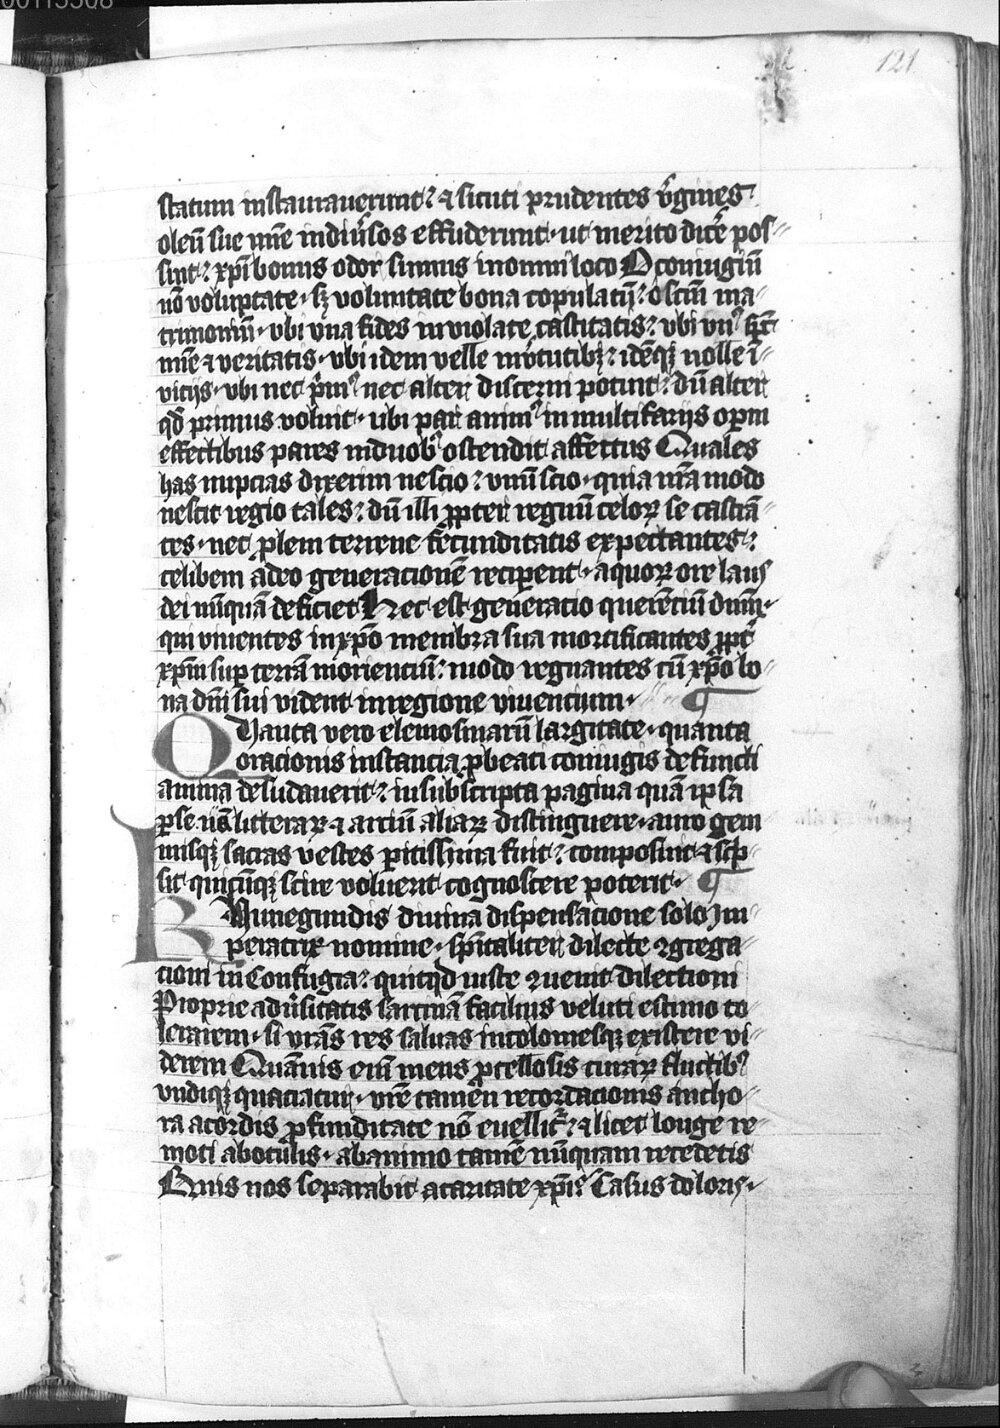 00113308
121
statum instauraverunt? ⁊ sicuti prudentes v̓gines
oleū sue mīe indiu̓sos effuderunt· ut merito dicē̓ pos⸗
sint? xp̄i bonus odor sumus in omni loco O coniugiū
nō voluptate· sꝫ voluntate bona copulatū? o sc̄m ma⸗
trimoniū· vbi vna fides inviolate castitatis? vbi vnꝰ
mīe ⁊ veritatis· vbi idem velle in v̓tutibꝫ? idēqꝫ nolle ī⸗
vicijs· vbi nec p̓mꝰ nec alter discerni potuit? dū alter
qd̄ primus voluit· ubi par animꝰ in multifarijs oꝑum
effectibus pares in duobꝰ ostendit affectus Quales
has nupcias dixerim nescio? vnū scio· quia nr̄a modo
nescit regio tales? dū illi ꝓpter regnū celoꝝ se castrā⸗
tes· nec ꝓlem terrene fecunditatis expectantes?
celibem adeo generacionē reciperent· a quoꝝ ore laus
dei nūquā deficiet Hec est generacio querenciū dn̄m·
qui viuentes in xp̄o membra sua mortificantes ꝓpt̓
xp̄m suꝑ terrā morienciū? modo regnantes cū xp̄o bo⸗
na dn̄i sui vident in regione viuentium· ¶
Quanta vero elemosinarū largitate· quanta
oracionis instancia ꝓ beati coniugis defuncti
anima desudauerit? in subscripta pagina quā ipsa
ꝑ se nā litteraꝝ ⁊ arciū aliaꝝ distinguere· auro gem⸗
misqꝫ sacras vestes ꝑitissima fuit? composuit ⁊ sc̓p⸗
sit quicūqꝫ scire voluerit cognoscere poterit· ¶
Kunegundis diuina dispensacione solo im⸗
peratrix nomine· sp̄italiter dilecte ꝯgrega⸗
cioni in Confugia? quitqd̄ iuste ꝯuenit dilectioni
Proprie adu̓sitatis sarcinā facilius veluti estimo to⸗
lerarem· si vr̄as res saluas incolomesqꝫ existere vi⸗
derem Quāuis em̄ mens ꝓcellosis curaꝝ fluctibꝰ
vndiqꝫ quaciatur· vr̄e tamen recordacionis ancho⸗
ra a cordis ꝓfunditate nō euellit̓? ⁊ licet longe re⸗
moti ab oculis· ab animo tamē nūquam recedetis
Quis nos separabit a caritate xp̄i? Casus doloris·